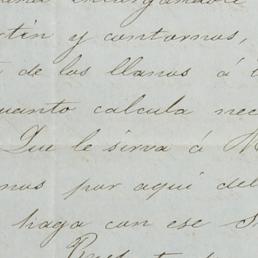 encargándole
rtin y contornos,
de los llanos á
cuanto calcula nec
Que le sirva á
nos por aquí del
haga con ese S
Pues